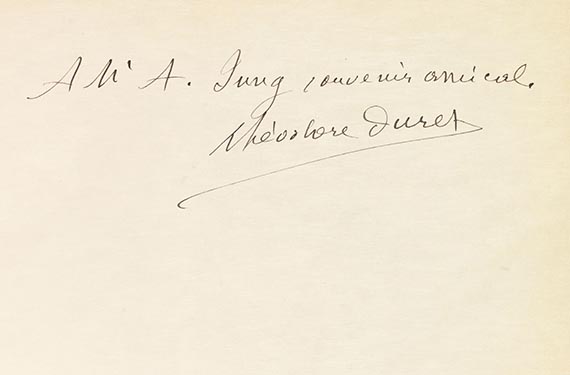 A Mr A. Jung souvenir amical.
Théodore Duret